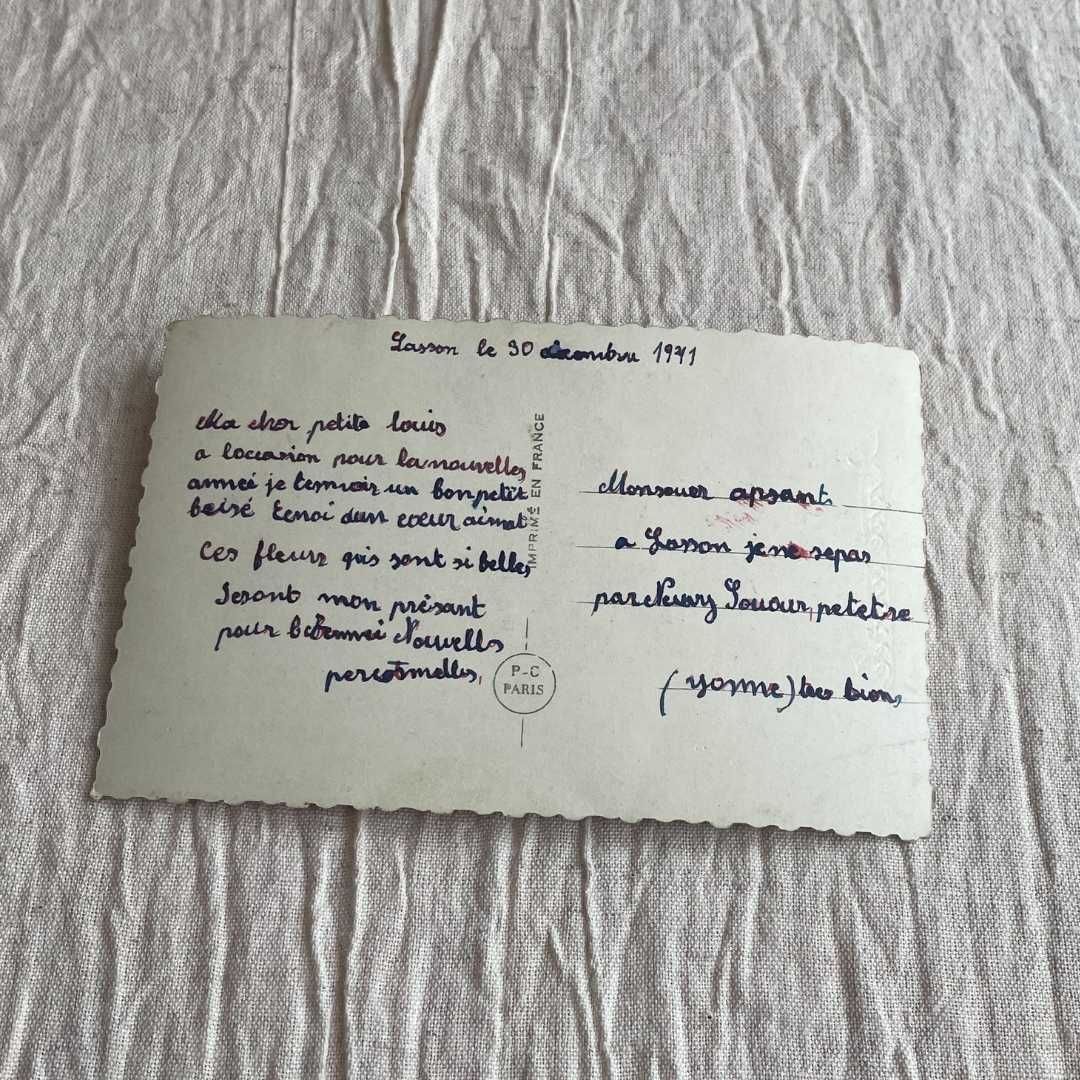 Lasson le 30 décembre 1941
Ma cher petite louis
a loccasion pour la nouvelles
anneé je un bon petit
beisé dun cœur aimat
Ces fleurs qui sont si belles
Seront mon présant
pour Nouvelles
IMPRIMÉ EN FRANCE
P-C
PARIS
Monsouer apsant
a Lasson jene sepas
par petetre
(yonne) tres bien